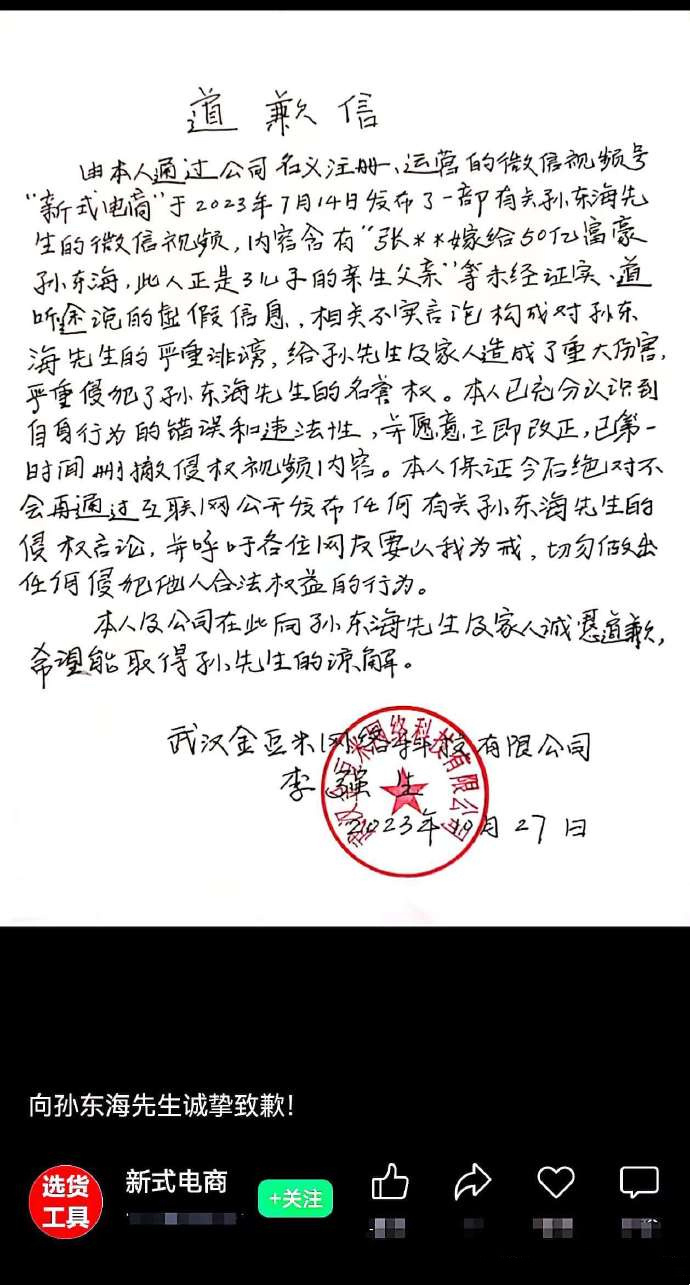 道歉信
由本人通过公司名义注册、运营的微信视频号
“新式电商”于2023年7月14日发布了一部有关孙东海先
生的微信视频，内容含有“张**嫁给50亿富豪
孙东海，此人正是3儿子的亲生父亲”等未经证实、道
听途说的虚假信息，相关不实言论构成对孙东
海先生的严重诽谤，给孙先生及家人造成了重大伤害，
严重侵犯了孙东海先生的名誉权。本人已充分认识到
自身行为的错误和违法性，并愿意立即改正，已第一
时间删撤侵权视频内容。本人保证今后绝对不
会再通过互联网公开发布任何有关孙东海先生的
侵权言论，并呼吁各位网友要以我为戒，切勿做出
任何侵犯他人合法权益的行为。
本人及公司在此向孙东海先生及家人诚恳道歉，
希望能取得孙先生的谅解。
武汉金亚米网络科技有限公司
李强生
2023年10月27日
向孙东海先生诚挚致歉!
选货
工具
新式电商
+关注